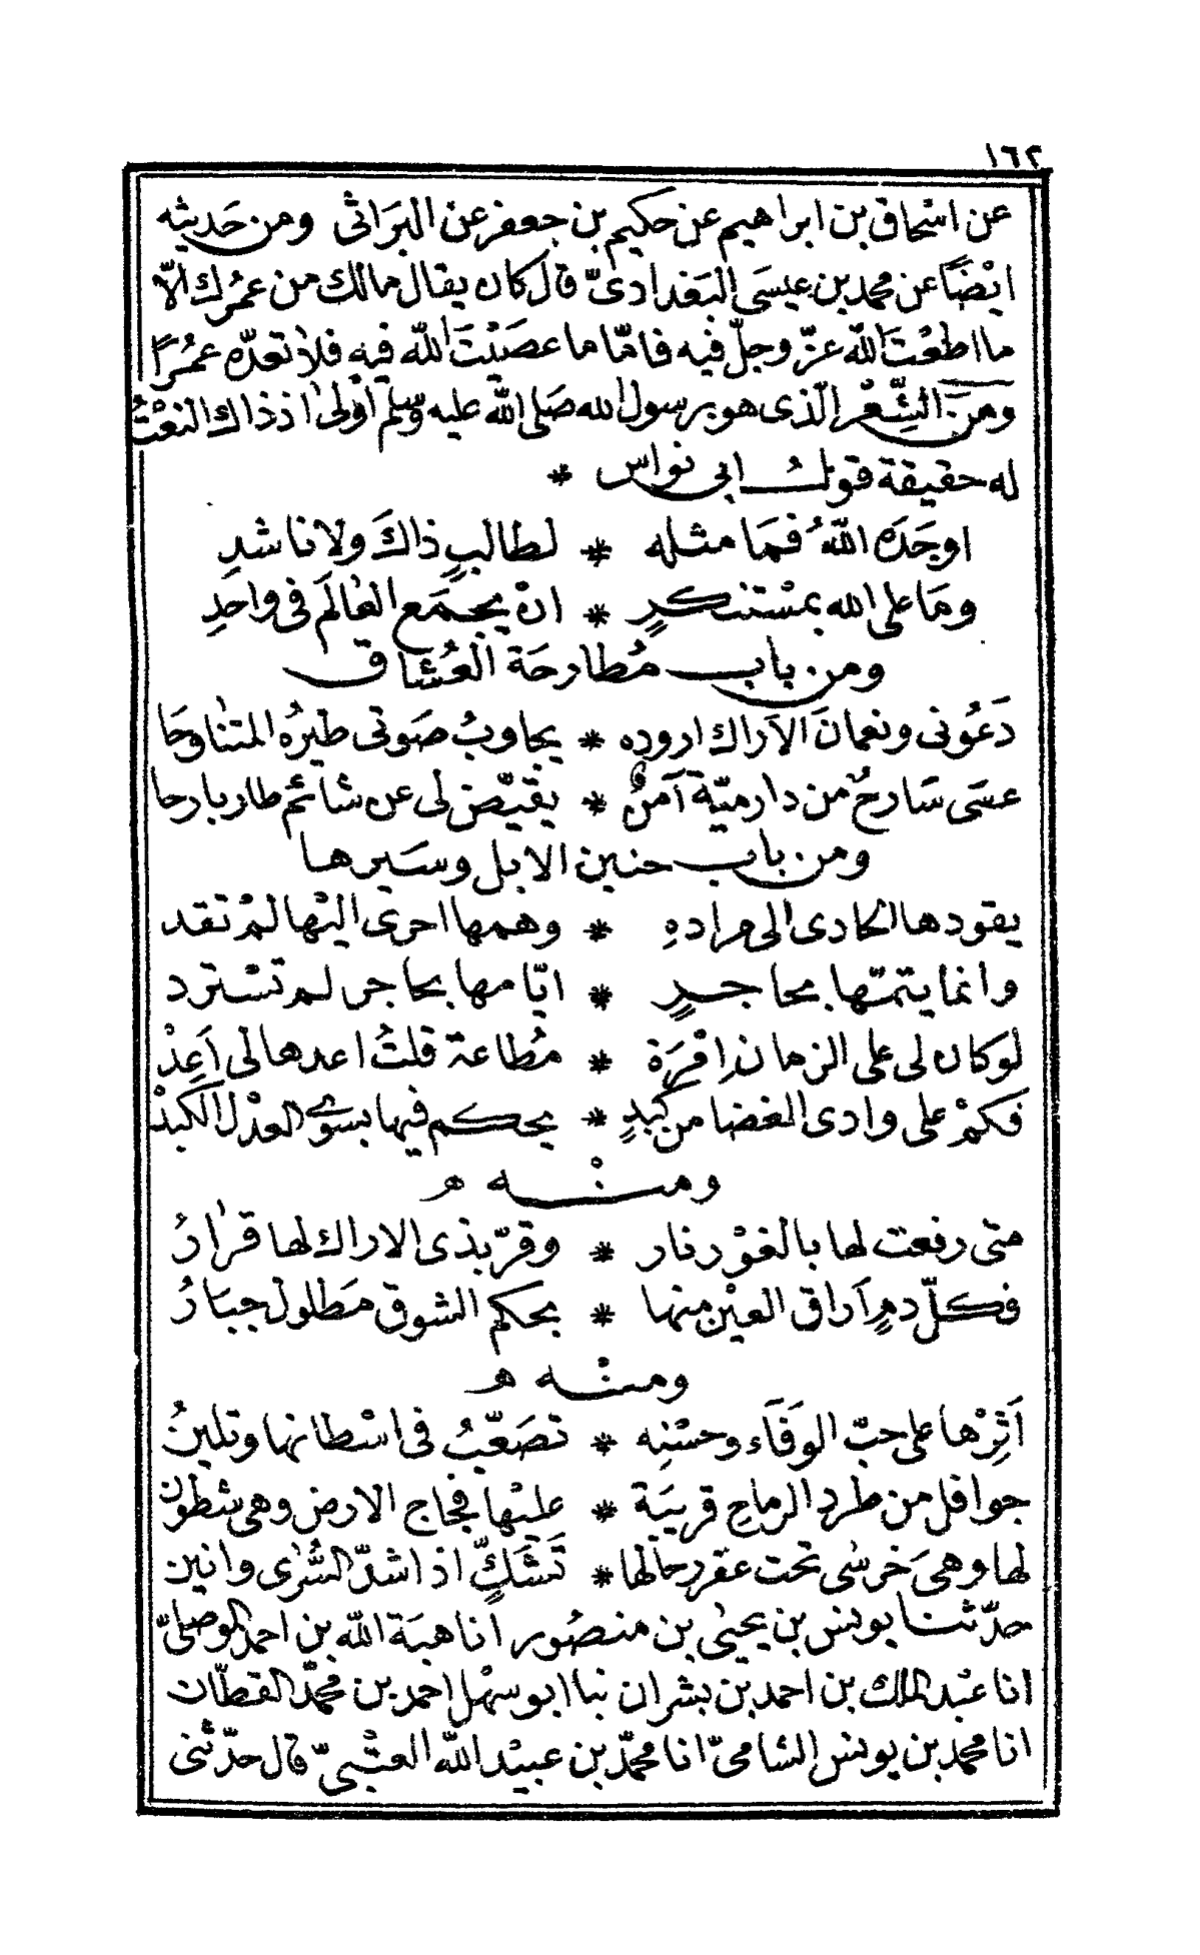 ١٦٢
عن اسْحاق بن ابراهيم عن حكيم بن جعفر عن البَراثى ومن حَديثه
ايْضًا عن محمد بن عيسَى البَغدادىّ قال كان يقال مالك من عمُرك الّا
ما اطعْتَ اللّه عزّ وجلّ فيه فامّا ما عصَيْتَ اللّه فيه فلا تعدّه عمُرًا
ومنَ الشِّعْر الّذى هو برسول الله صَلى اللّه عليه وسَلم اوْلى اذ ذاك النعْتُ
له حقيقة قولُ ابى نواس *
اوجَدَه اللّهُ فمَا مثله * لطالبٍ ذاكَ ولا ناشدِ
ومَا على الله بمسْتنكرٍ * انْ يجمَع العَالَم فى واحدِ
ومن باب مُطارحَة العُشاق
دَعَونى ونعمانَ الاَراك اروده * يجاوبُ صَوتى طيرُه المتناوحَا
عسَى سَارحٌ من دارميّة آمنٌ * يقيّض لى عن شائم طار بارحا
ومن باب حنين الابل وسَيرها
يقودها الحادى الى مرادهِ * وهمها احرى اليْها لمْ تقد
وانما يتمتّها بحاجرٍ * ايّامها بحاجر لم تسْترد
لو كان لى على الزمان اِمْرَة * مُطاعة قلتُ اعدها لى اَعِدْ
فكمْ على وادى الغضا من كبدٍ * يحكم فيها بسوى العدْل الكبدْ
ومنْه ه
متى رفعت لها بالغوْر نار * وقرّ بذى الاراك لها قرارُ
فكلّ دمٍ اَراق العيْن منها * بحكم الشوق مَطلول جبَارُ
ومنْه ه
اَثِرْها على حبّ الوَفَاء وحسْنِه * تصَعّبُ فى اشطانها وتلينُ
جوافل من طرد الرماحِ قريبَة * عليْها فجاج الارض وهى شطون
لها وهىَ خرسٌى تحت عقر رحالها * تَشَكٍّ اذا شدّ السُّرى وانين
حدّثنا يونس بن يحيى بن منصُور انا هبَة اللّه بن احمد الموصلىّ
انا عبْد الملك بن احمد بن بشران نبا ابو سهْل احمد بن محمّد القطّان
انا محمد بن يونس الشامىّ انا محمّد بن عبيْد اللّه العتْبىّ قال حدّثنى